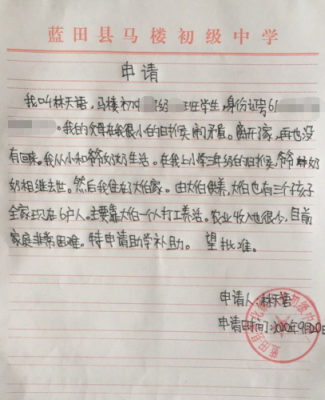 蓝田县马楼初级中学
申请
我叫林天语,马楼初中 班学生,身份证号61
。我的父母在我很小的时候闹矛盾。离开了家,再也没
有回来。我从小和爷奶生活。在我上小学三年级的时候,爷
奶相继去世。然后我住在大伯家。由大伯供养,大伯也有三个孩子
全家现在6户人。主要靠大伯一个人打工养活。农业收入也很少,目前
家庭非常困难。特申请助学补助。望批准。
申请人:林天语
申请时间:
蓝田县